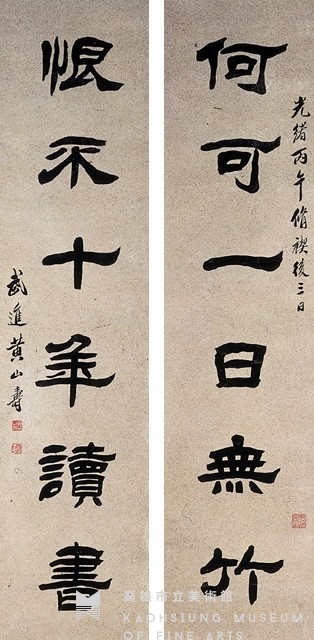 光緒丙午脩禊後三日
何可一日無竹
恨不十年讀書
武進黃山壽
高雄市立美術館
KAOHSIUNG MUSEUM
OF FINE ARTS